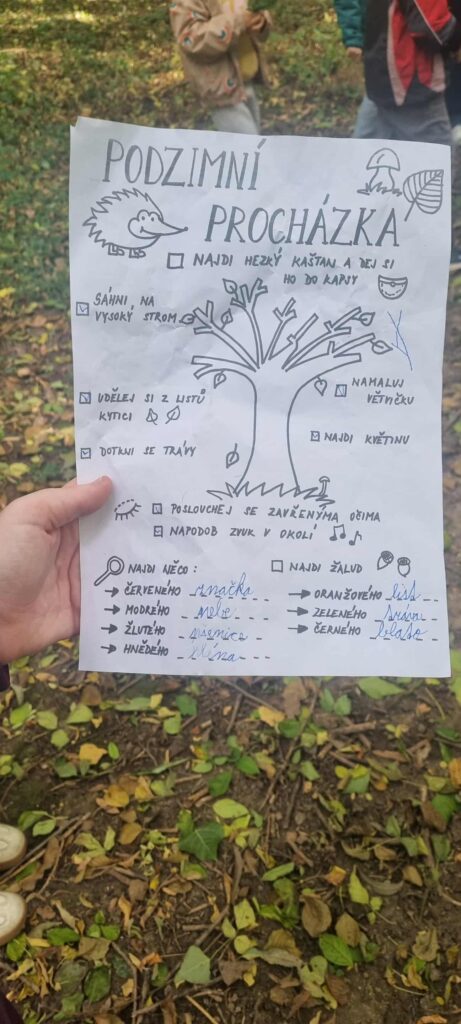 PODZIMNÍ
PROCHÁZKA
NAJDI HEZKÝ KAŠTAN A DEJ SI
HO DO KAPSY
SÁHNI NA
VYSOKÝ STROM
UDĚLEJ SI Z LISTŮ
KYTICI
NAMALUJ
VĚTVIČKU
NAJDI KVĚTINU
DOTKNI SE TRÁVY
POSLOUCHEJ SE ZAVŘENÝMA OČIMA
NAPODOB ZVUK V OKOLÍ
NAJDI NĚCO:
ČERVENÉHO značka
MODRÉHO nebe
ŽLUTÉHO
HNĚDÉHO hlína
NAJDI ŽALUD
ORANŽOVÉHO list
ZELENÉHO tráva
ČERNÉHO bláto